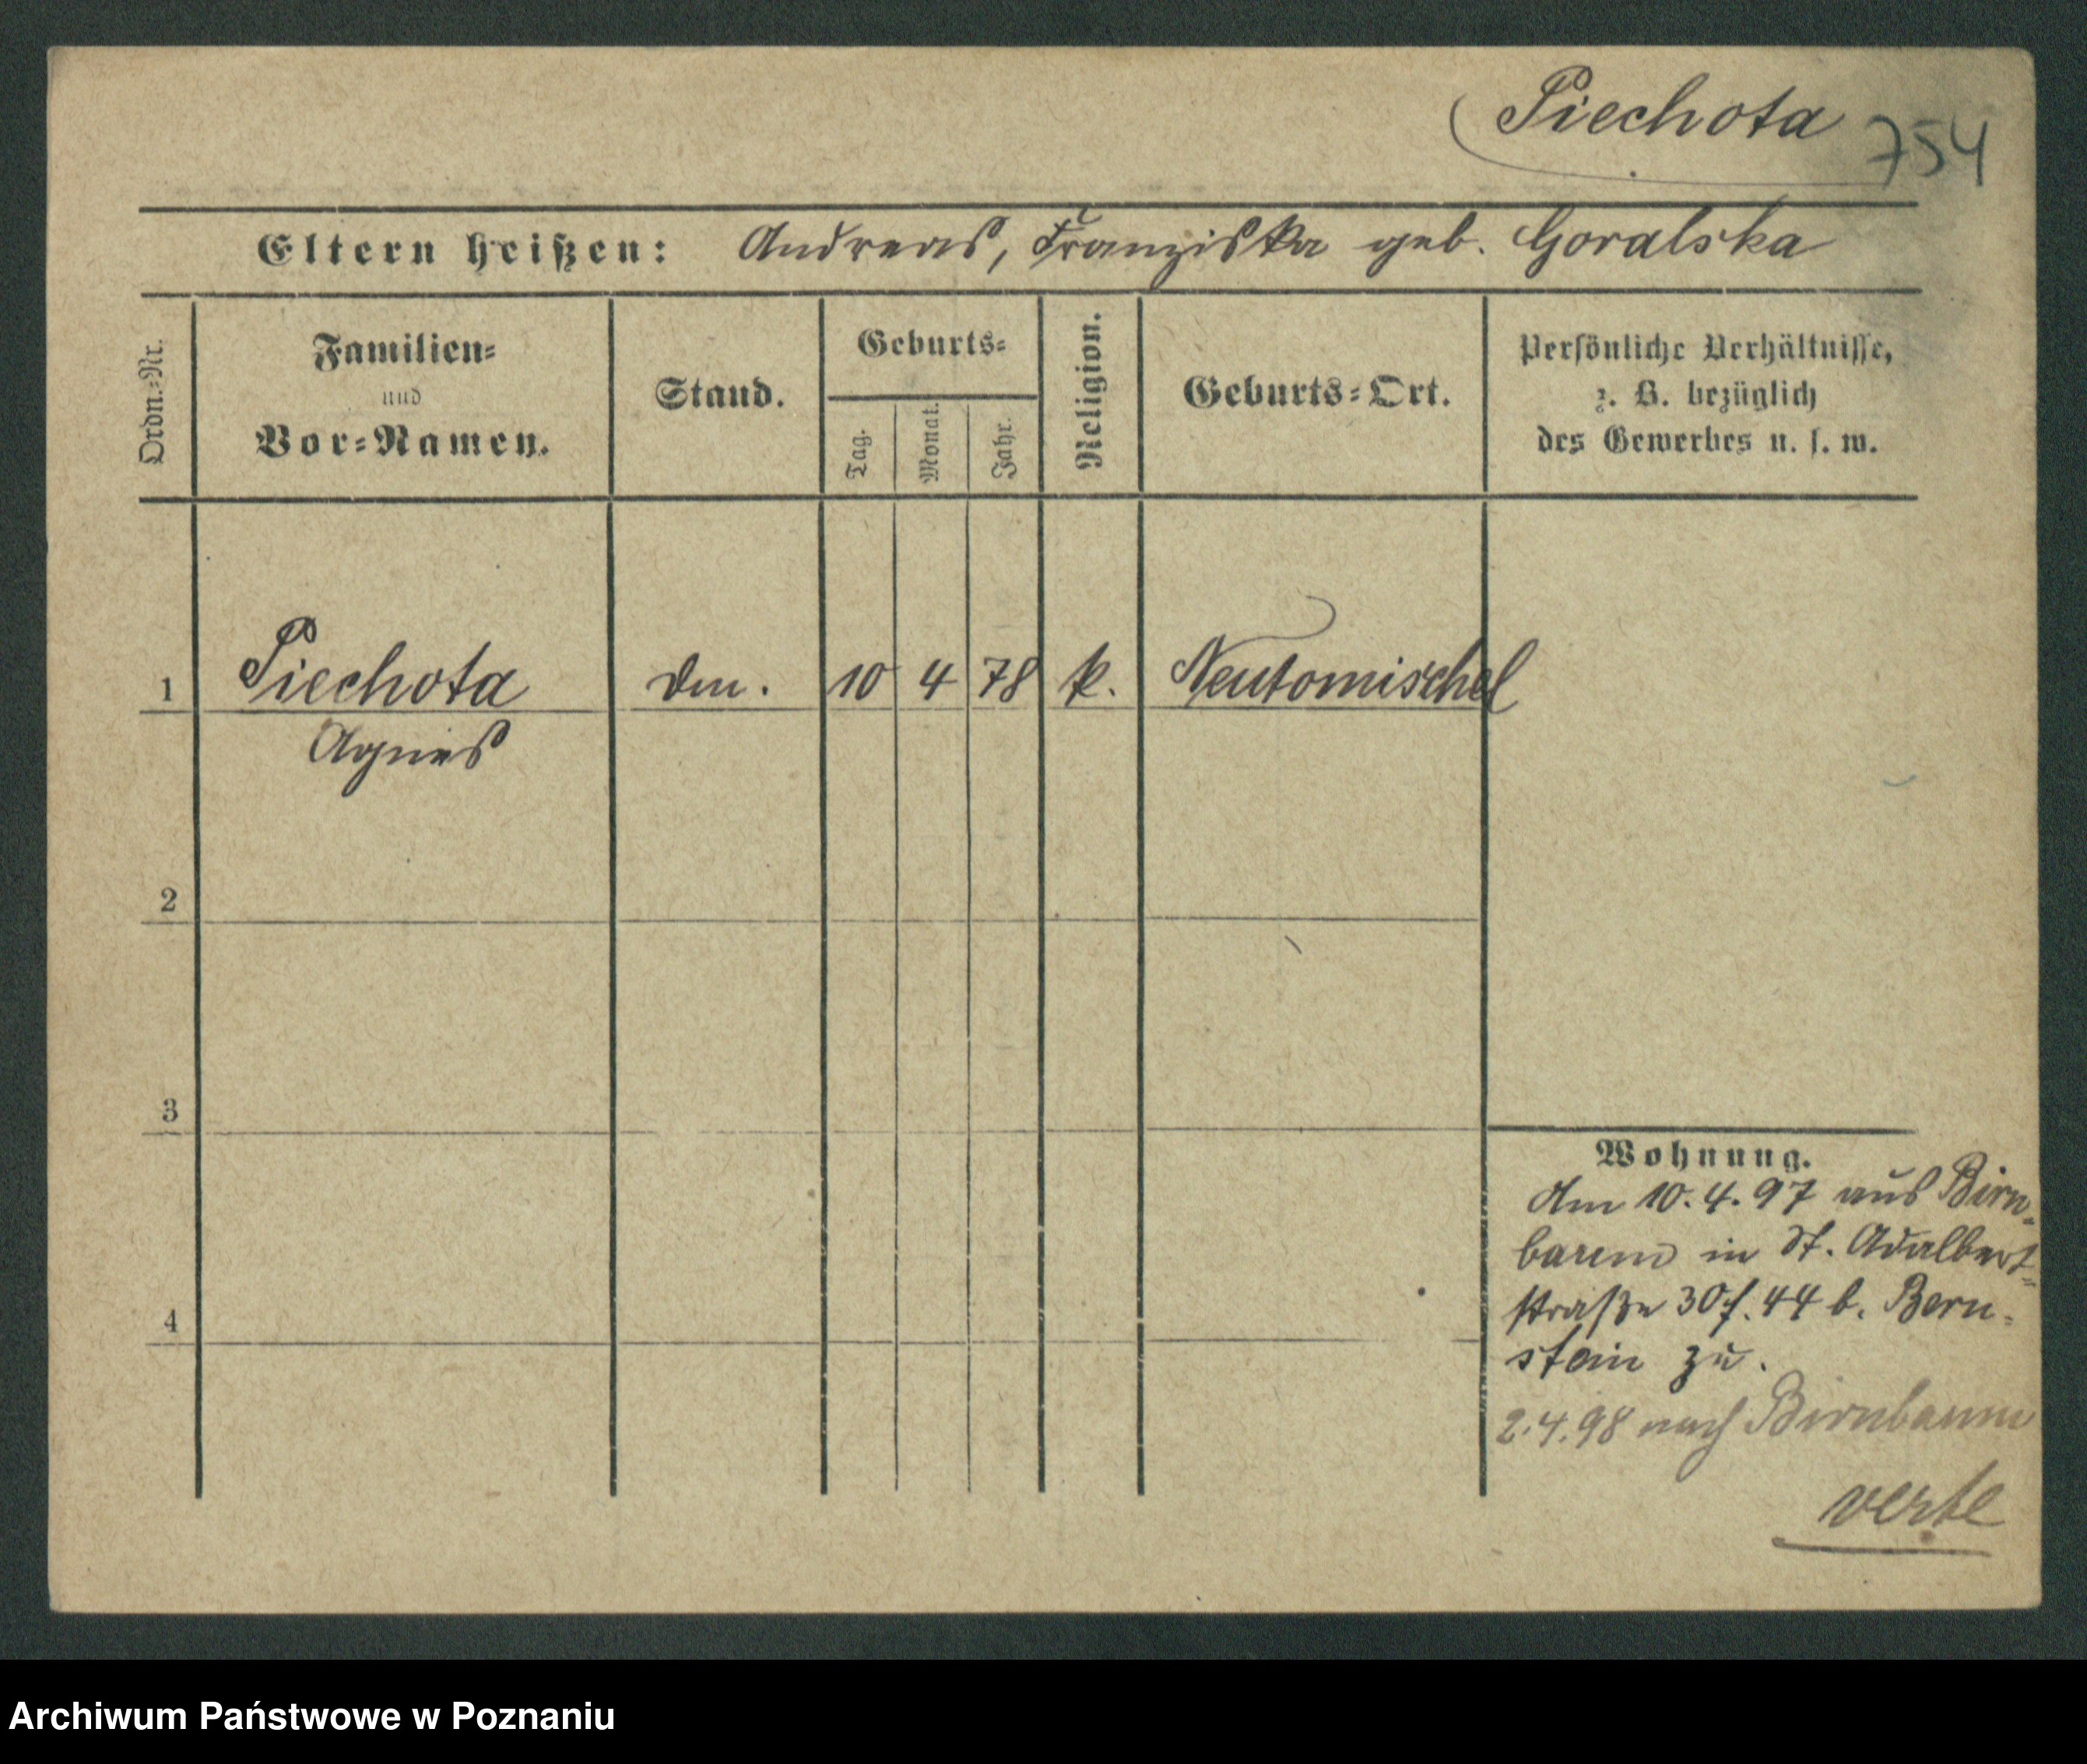 Piechota 754
Eltern heißen: Andreas, Franziska geb. Goralska
Ordn.-Nr.
Familien-
und
Vor-Namen.
Stand.
Geburts-
Tag.
Monat.
Jahr.
Religion.
Geburts-Ort.
Persönliche Verhältnisse,
z. B. bezüglich
des Gewerbes u. s. w.
1 Piechota 10 4 78 k. Neutomischel
Agnes
2
3
4
Wohnung.
Am 10.4.97 aus Birn-
baum in St. Adalbert-
straße 30 f. 44 b. Bern-
stein zu.
2.4.98 nach Birnbaum
verte
Archiwum Państwowe w Poznaniu